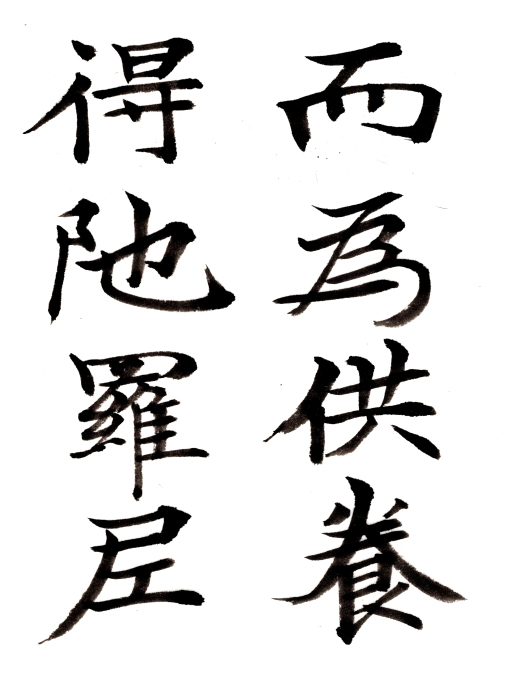 而為供養
得陁羅尼